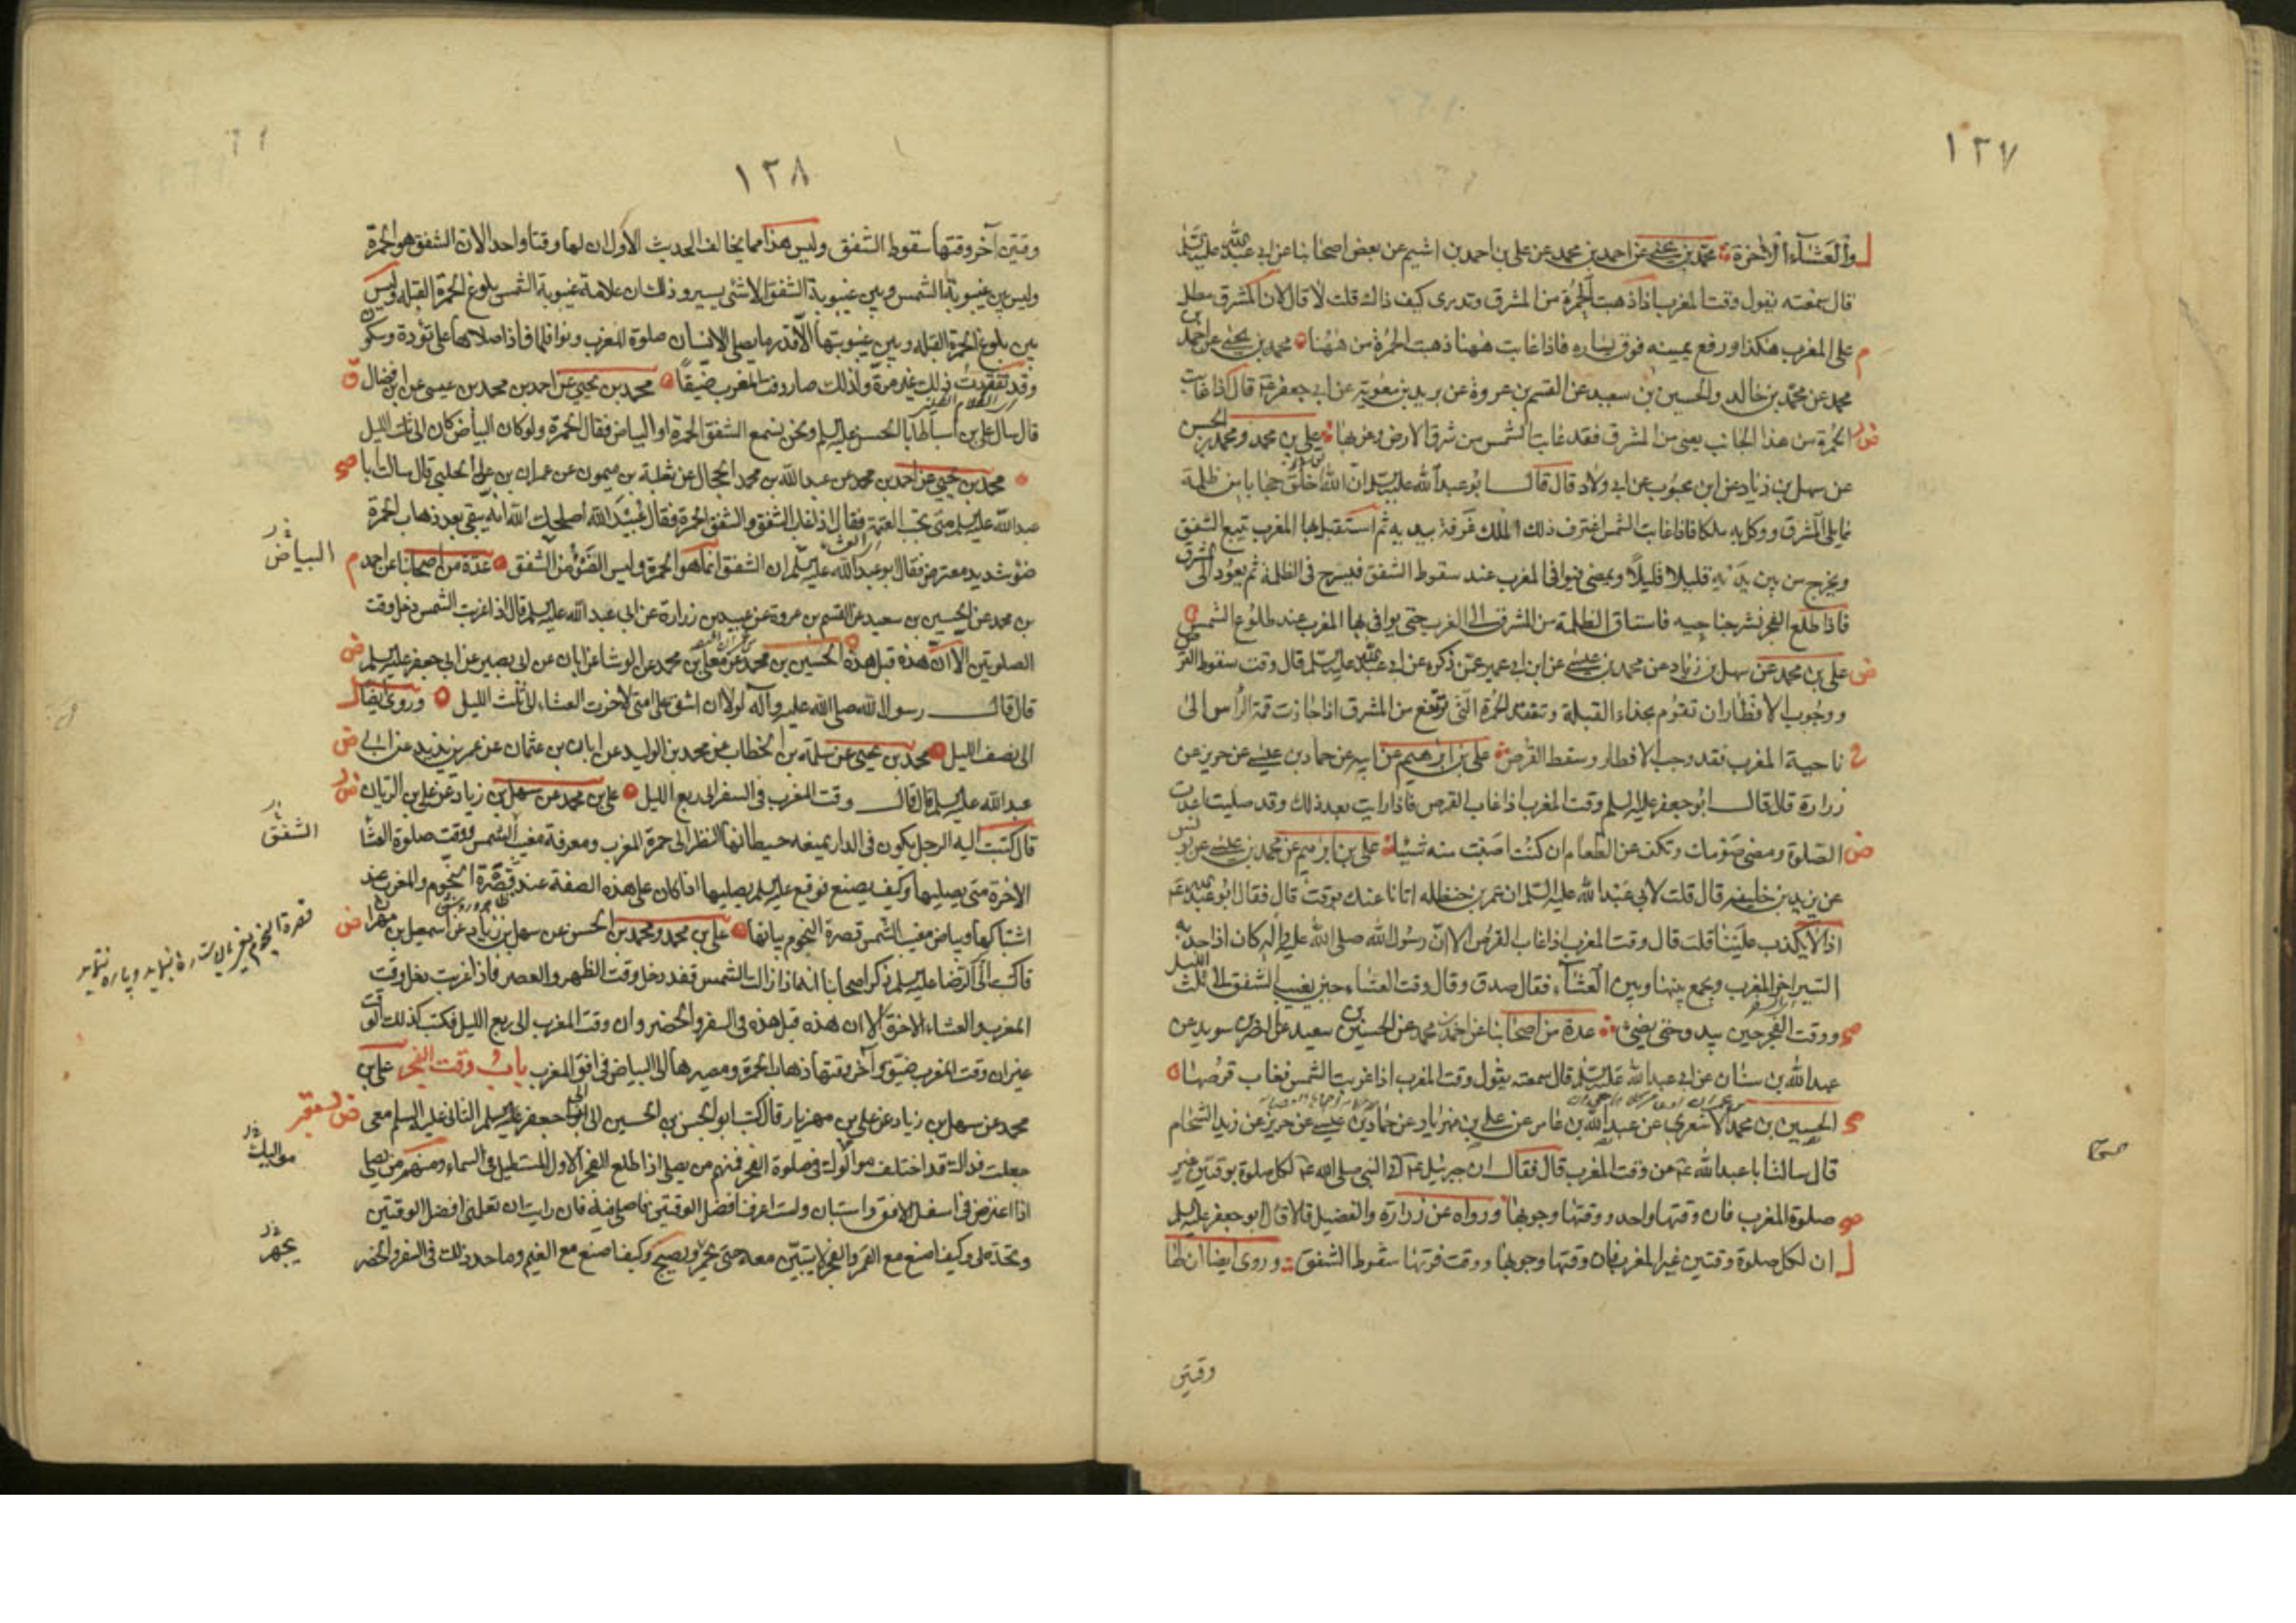 ١٢٧
والعشاء الآخرة محمد بن يحيى عن احمد بن محمد عن علي بن احمد بن اشيم عن بعض اصحابنا عن ابي عبد الله عليه السلم
قال سمعته يقول وقت المغرب اذا ذهبت الحمرة من المشرق وتدري كيف ذاك قلت لا قال لان المشرق مطل
على المغرب هكذا ورفع يمينه فوق يساره فاذا غابت ههنا ذهبت الحمرة من ههنا محمد بن يحيى عن احمد بن
محمد عن محمد بن خالد والحسين بن سعيد عن القسم بن عروة عن بريد بن معوية عن ابي جعفر ع قال اذا غابت
الحمرة من هذا الجانب يعني من المشرق فقد غابت الشمس من شرق الارض وغربها علي بن محمد ومحمد بن الحسن
عن سهل بن زياد عن ابن محبوب عن ابي ولاد قال قال ابو عبد الله عليه السلم ان الله خلق حجابا من ظلمة
مما يلي المشرق ووكل به ملكا فاذا غابت الشمس اغترف ذلك الملك غرفة بيديه ثم استقبل بها المغرب تتبع الشفق
ويخرج من بين يديه قليلا قليلا ويمضي فيوافي المغرب عند سقوط الشفق فيسرح في الظلمة ثم يعود الى المشرق
فاذا طلع الفجر نشر جناحيه فاستاق الظلمة من المشرق الى المغرب حتى يوافي بها المغرب عند طلوع الشمس
علي بن محمد عن سهل بن زياد عن محمد بن عيسى عن ابن ابي عمير عمن ذكره عن ابي عبد الله عليه السلم قال وقت سقوط القرص
ووجوب الافطار ان تقوم بحذاء القبلة وتتفقد الحمرة التي ترتفع من المشرق اذا جازت قمة الراس الى
ناحية المغرب فقد وجب الافطار وسقط القرص علي بن ابرهيم عن ابيه عن حماد بن عيسى عن حريز عن
زرارة قال قال ابو جعفر عليه السلم وقت المغرب اذا غاب القرص فاذا رايت بعد ذلك وقد صليت اعدت
الصلوة ومضى صومك وتكف عن الطعام ان كنت اصبت منه شيئا علي بن ابرهيم عن محمد بن عيسى عن يونس
عن يزيد بن خليفه قال قلت لابي عبد الله عليه السلم ان عمر بن حنظله اتانا عنك بوقت قال فقال ابو عبد الله ع
اذا لا يكذب علينا قلت قال وقت المغرب اذا غاب القرص الا ان رسول الله صلى الله عليه واله كان اذا جد به
السير اخر المغرب ويجمع بينها وبين العشاء فقال صدق وقال وقت العشاء حين يغيب الشفق الى ثلث الليل
ووقت الفجر حين يبدو حتى يضيء عدة من اصحابنا عن احمد بن محمد عن الحسين بن سعيد عن النضر بن سويد عن
عبد الله بن سنان عن ابي عبد الله عليه السلم قال سمعته يقول وقت المغرب اذا غربت الشمس فغاب قرصها
الحسين بن محمد الاشعري عن عبد الله بن عامر عن علي بن مهزيار عن حماد بن عيسى عن حريز عن زيد الشحام
قال سالت ابا عبد الله ع عن وقت المغرب قال فقال ان جبرئيل ع اتى النبي صلى الله ع لكل صلوة بوقتين غير
صلوة المغرب فان وقتها واحد ووقتها وجوبها ورواه عن زرارة والفضيل قالا قال ابو جعفر عليه السلم
ان لكل صلوة وقتين غير المغرب فان وقتها وجوبها ووقت فوتها سقوط الشفق وروي ايضا ان لها
وقتين
١٢٨
وقتين آخر وقتها سقوط الشفق وليس هذا مما يخالف الحديث الاول ان لها وقتا واحدا لان الشفق هو الحمرة
وليس بين غيبوبة الشمس وبين غيبوبة الشفق الا شيء يسير وذلك ان علامة غيبوبة الشمس بلوغ الحمرة القبلة وليس
بين بلوغ الحمرة القبلة وبين غيبوبتها الا قدر ما يصلي الانسان صلوة المغرب ونوافلها اذا صلاها على تؤدة وسكون
وقد تفقدت ذلك غير مرة ولذلك صار وقت المغرب ضيقا محمد بن يحيى عن احمد بن محمد بن عيسى عن ابن فضال
قال سال علي بن اسباط ابا الحسن عليه السلم ونحن نسمع الشفق الحمرة او البياض فقال الحمرة ولو كان البياض كان الى ثلث الليل
محمد بن يحيى عن احمد بن محمد عن عبد الله بن محمد الحجال عن ثعلبة بن ميمون عن عمران بن علي الحلبي قال سالت ابا
عبد الله عليه السلم متى تجب العتمة فقال اذا غاب الشفق والشفق الحمرة فقال عبيد الله اصلحك الله انه يبقى بعد ذهاب الحمرة
ضوء شديد معترض فقال ابو عبد الله عليه السلم ان الشفق انما هو الحمرة وليس الضوء من الشفق عدة من اصحابنا عن احمد
البياض
بن محمد عن الحسين بن سعيد عن القسم بن عروة عن عبيد بن زرارة عن ابي عبد الله عليه السلم قال اذا غربت الشمس دخل وقت
الصلوتين الا ان هذه قبل هذه الحسين بن محمد عن معلى بن محمد عن الوشا عن ابان عن ابي بصير عن ابي جعفر عليه السلم
قال قال رسول الله صلى الله عليه وآله لولا ان اشق على امتي لاخرت العشاء الى ثلث الليل وروي ايضا
الى نصف الليل محمد بن يحيى عن سلمة بن الخطاب عن محمد بن الوليد عن ابان بن عثمان عن عمر بن يزيد عن ابي
عبد الله عليه السلم قال قال وقت المغرب في السفر الى ربع الليل علي بن محمد عن سهل بن زياد عن علي بن الريان
قال كتبت اليه الرجل يكون في الدار يمنعه حيطانها النظر الى حمرة المغرب ومعرفة مغيب الشمس ووقت صلوة العشا
الشفق
الاخرة متى يصليها وكيف يصنع فوقع عليه السلم يصليها اذا كان على هذه الصفة عند قصرة النجوم والمغرب عند
اشتباكها وبياض مغيب الشمس قصرة النجوم بيانها علي بن محمد ومحمد بن الحسن عن سهل بن زياد عن اسمعيل بن مهران
قال كتبت الى الرضا عليه السلم ذكر اصحابنا انه اذا زالت الشمس فقد دخل وقت الظهر والعصر واذا غربت دخل وقت
المغرب والعشاء الاخرة الا ان هذه قبل هذه في السفر والحضر وان وقت المغرب الى ربع الليل فكتب كذلك الوقت
غير ان وقت المغرب ضيق وآخر وقتها ذهاب الحمرة ومصيرها الى البياض في افق المغرب باب وقت الفجر علي بن
محمد عن سهل بن زياد عن علي بن مهزيار قال كتب ابو الحسن بن الحسين الى ابي جعفر الثاني عليه السلم معي
جعلت فداك قد اختلف موالوك في صلوة الفجر فمنهم من يصلي اذا طلع الفجر الاول المستطيل في السماء ومنهم من يصلي
مواليك
اذا اعترض في اسفل الافق واستبان ولست اعرف افضل الوقتين فاصلي فيه فان رايت ان تعلمني افضل الوقتين
وتحده لي وكيف اصنع مع القمر والفجر لا يتبين معه حتى يحمر ويصبح وكيف اصنع مع الغيم وما حد ذلك في السفر والحضر